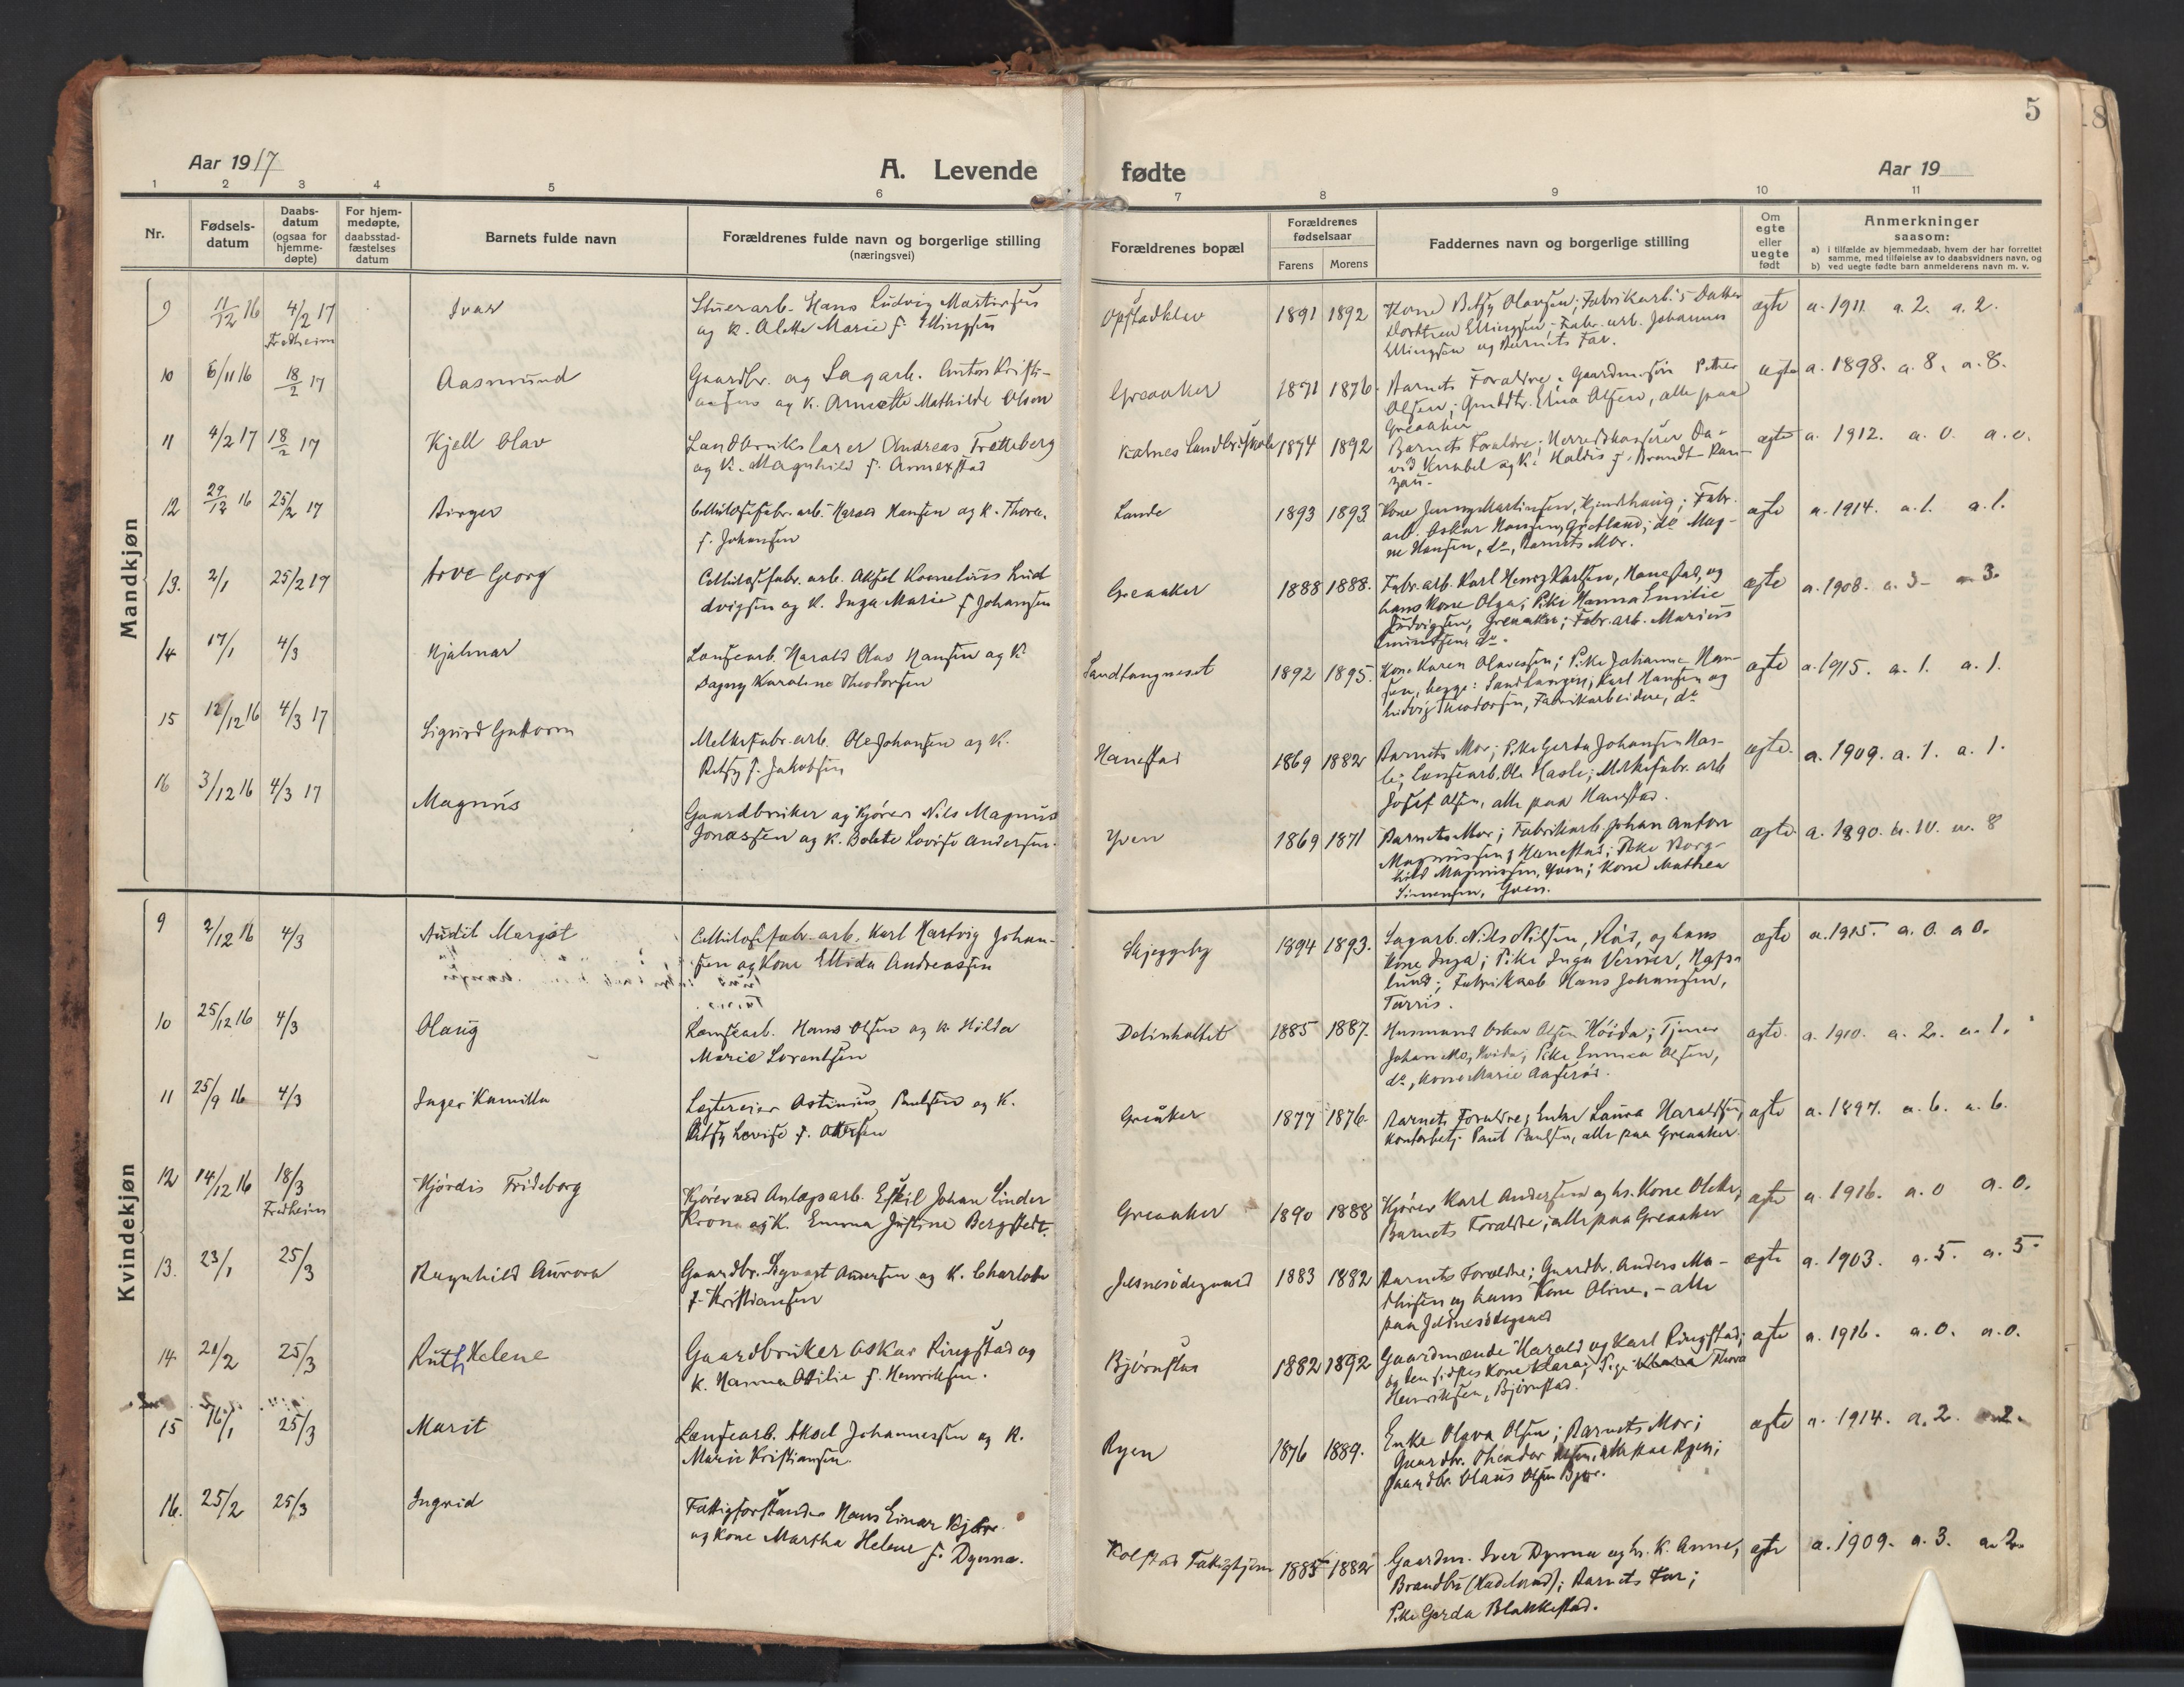 5
Aar 1917
A. Levende
fødte
Aar 19
1 2 3 4 5 6 7 8 9 10 11
Nr.
Fødsels-
datum
Daabs-
datum
(ogsaa for
hjemme-
døpte)
For hjem-
medøpte,
daabsstad-
fæstelses
datum
Barnets fulde navn
Forældrenes fulde navn og borgerlige stilling
(næringsvei)
Forældrenes bopæl
Forældrenes
fødselsaar
Farens Morens
Faddernes navn og borgerlige stilling
Om
egte
eller
uegte
født
Anmerkninger
saasom:
a) i tilfælde av hjemmedaab, hvem der har forrettet
samme, med tilføielse av to daabsvidners navn, og
b) ved uegte fødte barn anmelderens navn m. v.
Mandkjøn
9 11/12 16 4/2 17 Ivar Stuerarb. Hans Ludvig Martinsen Opstadklev 1891 1892 Kone Betsy Olavsen; Fabrikarb.s Datter egte a. 1911. a. 2. a. 2.
Fredheim og K. Alette Marie f. Ellingsen Dorthea Ellingsen; Fabr. arb. Johannes
Ellingsen og Barnets Far.
10 6/11 16 18/2 17 Aasmund Gaardbr. og Sagarb. Anton Kristi- Greaaker 1871 1876. Barnets Forældre; Gaardm. søn Petter egte a. 1898. a. 8. a. 8.
ansen og K. Annette Mathilde Olsen Olsen; Gmdtr. Elna Olsen, alle paa
Greaaker
11 4/2 17 18/2 17 Kjell Olav Landbrukslærer Andreas Tretteberg Kalnes Landbr.skole 1894 1892 Barnets Forældre; Herredskasserer Da- egte a. 1912. a. 0. a. 0.
og K. Magnhild f. Annexstad vid Knabel og K. Haldis f. Brandt Ran-
zau.
12 29/12 16 25/2 17 Birger Cellulosefabr. arb. Harald Hansen og K. Thora Lande 1893 1893 Kone Jenny Martinsen, ; Fabr. egte a. 1914. a. 1. a. 1.
f. Johansen arb. Oskar Hansen, ; do Mag-
ne Hansen, do, Barnets Mor.
13. 2/1 25/2 17 Arve Georg Cellulosefabr. arb. Aksel Kornelius Lud Greaaker 1888 1888. Fabr. arb. Karl Henry Karlsen, Hanestad, og egte a. 1908. a. 3- a. 3.
dvigsen og K. Inga Marie f. Johansen hans Kone Olga; Pike Hanna Emilie
Ludvigsen, Greaaker; Fabr. arb. Marius
do.
14 17/1 4/3 Hjalmar Lænsearb. Harald Olav Hansen og K. Sandtangneset 1892 1895. Kone Karen Olavessen; Pike Johanne Han- egte a. 1915. a. 1. a. 1.
Dagny Karoline Theodorsen sen, begge: Sandtangen; Karl Hansen og
Ludvig Theodorsen, Fabrikarbeidere, do
15 12/12 16 4/3 17 Sigurd Guttorm Melkefabr. arb. Ole Johansen og K. Hanestad 1869 1882 Barnets Mor; Pike Gerda Johansen Has- egte. a. 1909. a. 1. a. 1.
Betsy f. Jakobsen le; Lænsearb. Ole Hasle; Melkefabr. arb
Josef Olsen, alle paa Hanestad.
16 3/12 16 4/3 17 Magnus Gaardbruker og Kjører Nils Magnus Yven 1869 1871 Barnets Mor; Fabrikarb. Johan Anton egte a. 1890. a. 10. a. 8
Jonassen og K. Bolette Lovise Andersen. Magnussen, Hanestad; Pike Borg-
hild Magnussen, Yven; Kone Mathea
Simensen, Yven.
Kvindekjøn
9 2/12 16 4/3 Audil Margot Cellulosefabr. arb. Karl Hartvig Johan- Skjeggeby 1894 1893. Sagarb. Nils Nilsen, Råd, og hans egte a. 1915. a. 0. a 0.
sen og Kone Ellida Andreassen Kone Inga; Pike Inga Verner, Hafs-
lund; Fabrikarb Hans Johansen,
Tarris.
10 25/12 16 4/3 Olaug Lænsearb. Hans Olsen og K. Hilda Delinhaltet 1885 1887. Husmand Oskar Olsen Höida; Tjener egte. a. 1910. a. 2. a. 1.
Marie Lorentsen Johan Moe, Hvida; Pike Emma Olsen,
do, Kone Marie Aaserød.
11 25/9 16 4/3 Inger Kamilla Lægtereier Astinius Paulsen og K. Greåker 1877 1876. Barnets Forældre; Enke Laura Haraldsen, egte a. 1897. a. 6. a. 6.
Betsy Lovise f. Ottersen Kontorbetj. Paul Paulsen, alle paa Greaaker.
12 14/12 16 18/3 Hjördis Frideborg Kjører ved Anlægsarb. Eskil Johan Linder Greaaker 1890 1888 Kjører Karl Andersen og hs. Kone Olette; egte a. 1916. a. 0 a. 0.
Fredheim Krona og K. Emma Justine Bergstedt. Barnets Forældre; alle paa Greaaker
13. 23/1 25/3 Ragnhild Aurora Gaardbr. Sigvart Andersen og K. Charlotte Jelsnesödegaard 1883 1882 Barnets Forældre; Gaardbr. Anders Ma- egte a. 1903. a. 5. a. 5.
f. Kristiansen thisen og hans Kone Oline, - alle
paa Jelsnesödegaard
14 21/2 25/3 Ruth Helene Gaardbruker Oskar Ringstad og Bjørnstad 1882 1892 Gaardmænde Harald og Karl Ringstad; egte a. 1916. a. 0. a. 0.
K. Hanna Otilie f. Henriksen. og den sidstes Kone Klara; Pige Thora
Henriksen, Bjørnstad.
15 16/1 25/3 Marit Lænsearb. Aksel Johannessen og K. Ryen 1876 1889. Enke Olava Olsen; Barnets Mor; egte a. 1914. a. 2. a. 2.
Marie Kristiansen. Gaardbr. Theodor Olsen, alle paa Ryen;
Gaardbr. Olaus Olsen Bjøre.
16. 25/2 25/3 Ingrid Fattigforstander Hans Einar Bjerve Kolstad Fattighjem 1885 1882 Gaardm. Iver Dynna og hs. K. Anne, egte a. 1909. a. 3. a. 2.
og Kone Martha Helene f. Dynna. Brandbu (Hadeland); Barnets Far;
Pike Gerda Blakkestad.